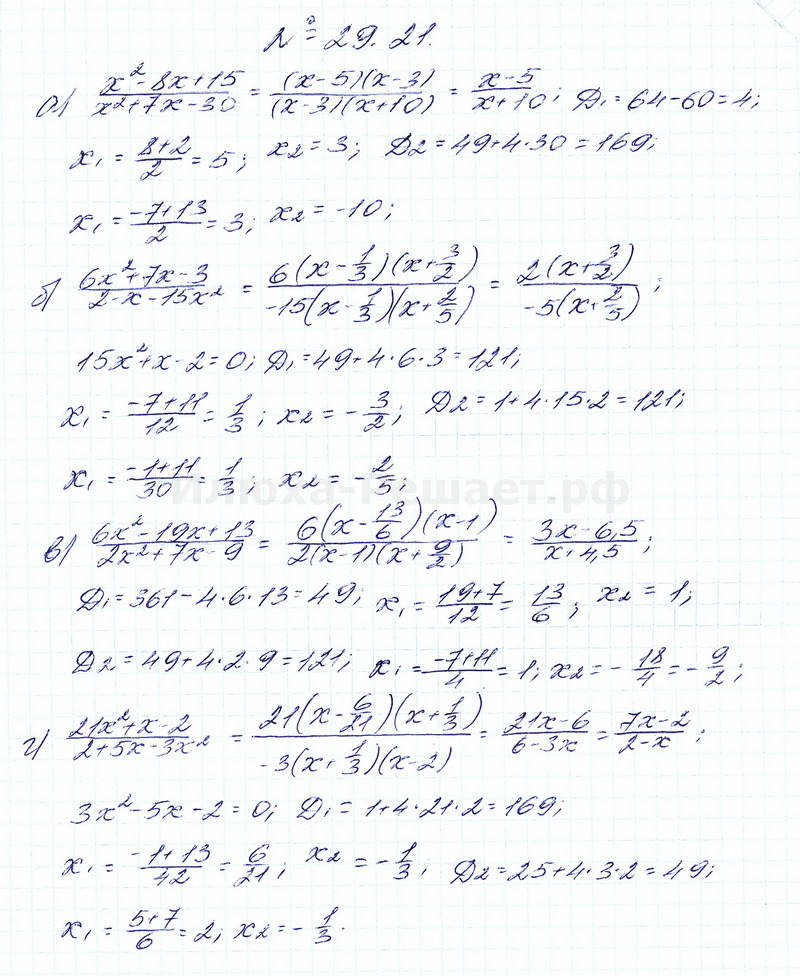 № 29.21.
а) (x²-8x+15)/(x²+7x-30) = ((x-5)(x-3))/((x-3)(x+10)) = (x-5)/(x+10); D₁=64-60=4;
x₁ = (8+2)/2 = 5; x₂=3; D₂=49+4·30=169;
x₁ = (-7+13)/2 = 3; x₂ = -10;
б) (6x²+7x-3)/(2-x-15x²) = (6(x-1/3)(x+3/2))/(-15(x-1/3)(x+2/5)) = (2(x+3/2))/(-5(x+2/5));
15x²+x-2=0; D₁=49+4·6·3=121;
x₁ = (-7+11)/12 = 1/3; x₂ = -3/2; D₂=1+4·15·2=121;
x₁ = (-1+11)/30 = 1/3; x₂ = -2/5;
Илюха-Решает.рф
в) (6x²-19x+13)/(2x²+7x-9) = (6(x-13/6)(x-1))/(2(x-1)(x+9/2)) = (3x-6,5)/(x+4,5);
D₁=361-4·6·13=49; x₁ = (19+7)/12 = 13/6; x₂ = 1;
D₂=49+4·2·9=121; x₁ = (-7+11)/4 = 1; x₂ = -18/4 = -9/2;
г) (21x²+x-2)/(2+5x-3x²) = (21(x-6/21)(x+1/3))/(-3(x+1/3)(x-2)) = (21x-6)/(6-3x) = (7x-2)/(2-x);
3x²-5x-2=0; D₁ = 1+4·21·2=169;
x₁ = (-1+13)/42 = 6/21; x₂ = -1/3; D₂=25+4·3·2=49;
x₁ = (5+7)/6 = 2; x₂ = -1/3.